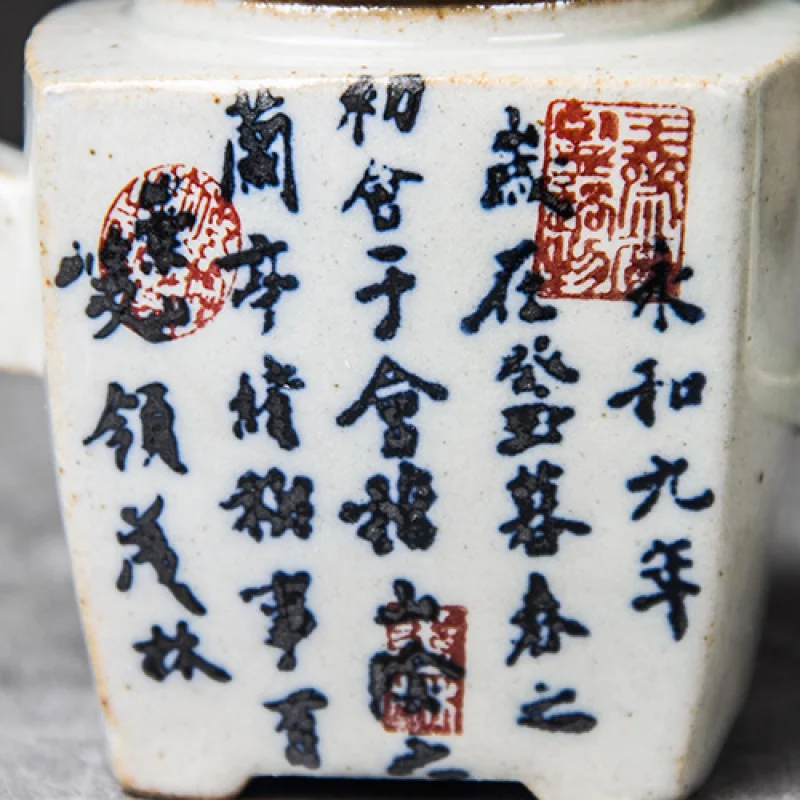 永和九年
歲在癸丑暮春之
初會于會稽山陰之
蘭亭脩禊事
峻領茂林